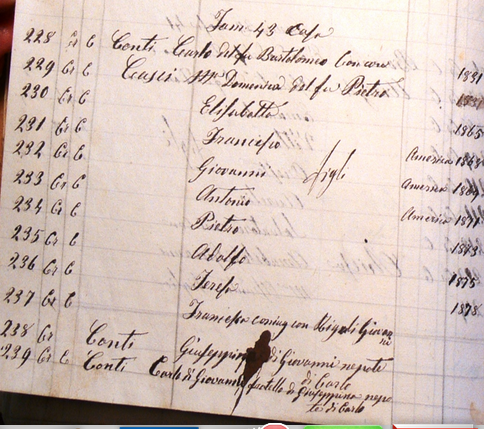 Fam 43 Casa
228 Cr C Conti Carlo del fu Bartolomeo 1831
229 Cr C Casci Ma Domenica del fu Pietro
230 Cr C Elisabetta 1865
231 Cr C Francesco America
232 Cr C Giovanni figli America 1869
233 Cr C Antonio America 1871
234 Cr C Pietro 1873
235 Cr C Adolfo 1875
236 Cr C Teresa 1878
237 Cr C Francesca coniug con Giovanni
238 Cr Conti Giuseppina di Giovanni nepote di Carlo
239 Cr C Conti Carlo di Giovanni fratello di Giuseppina nepote di Carlo